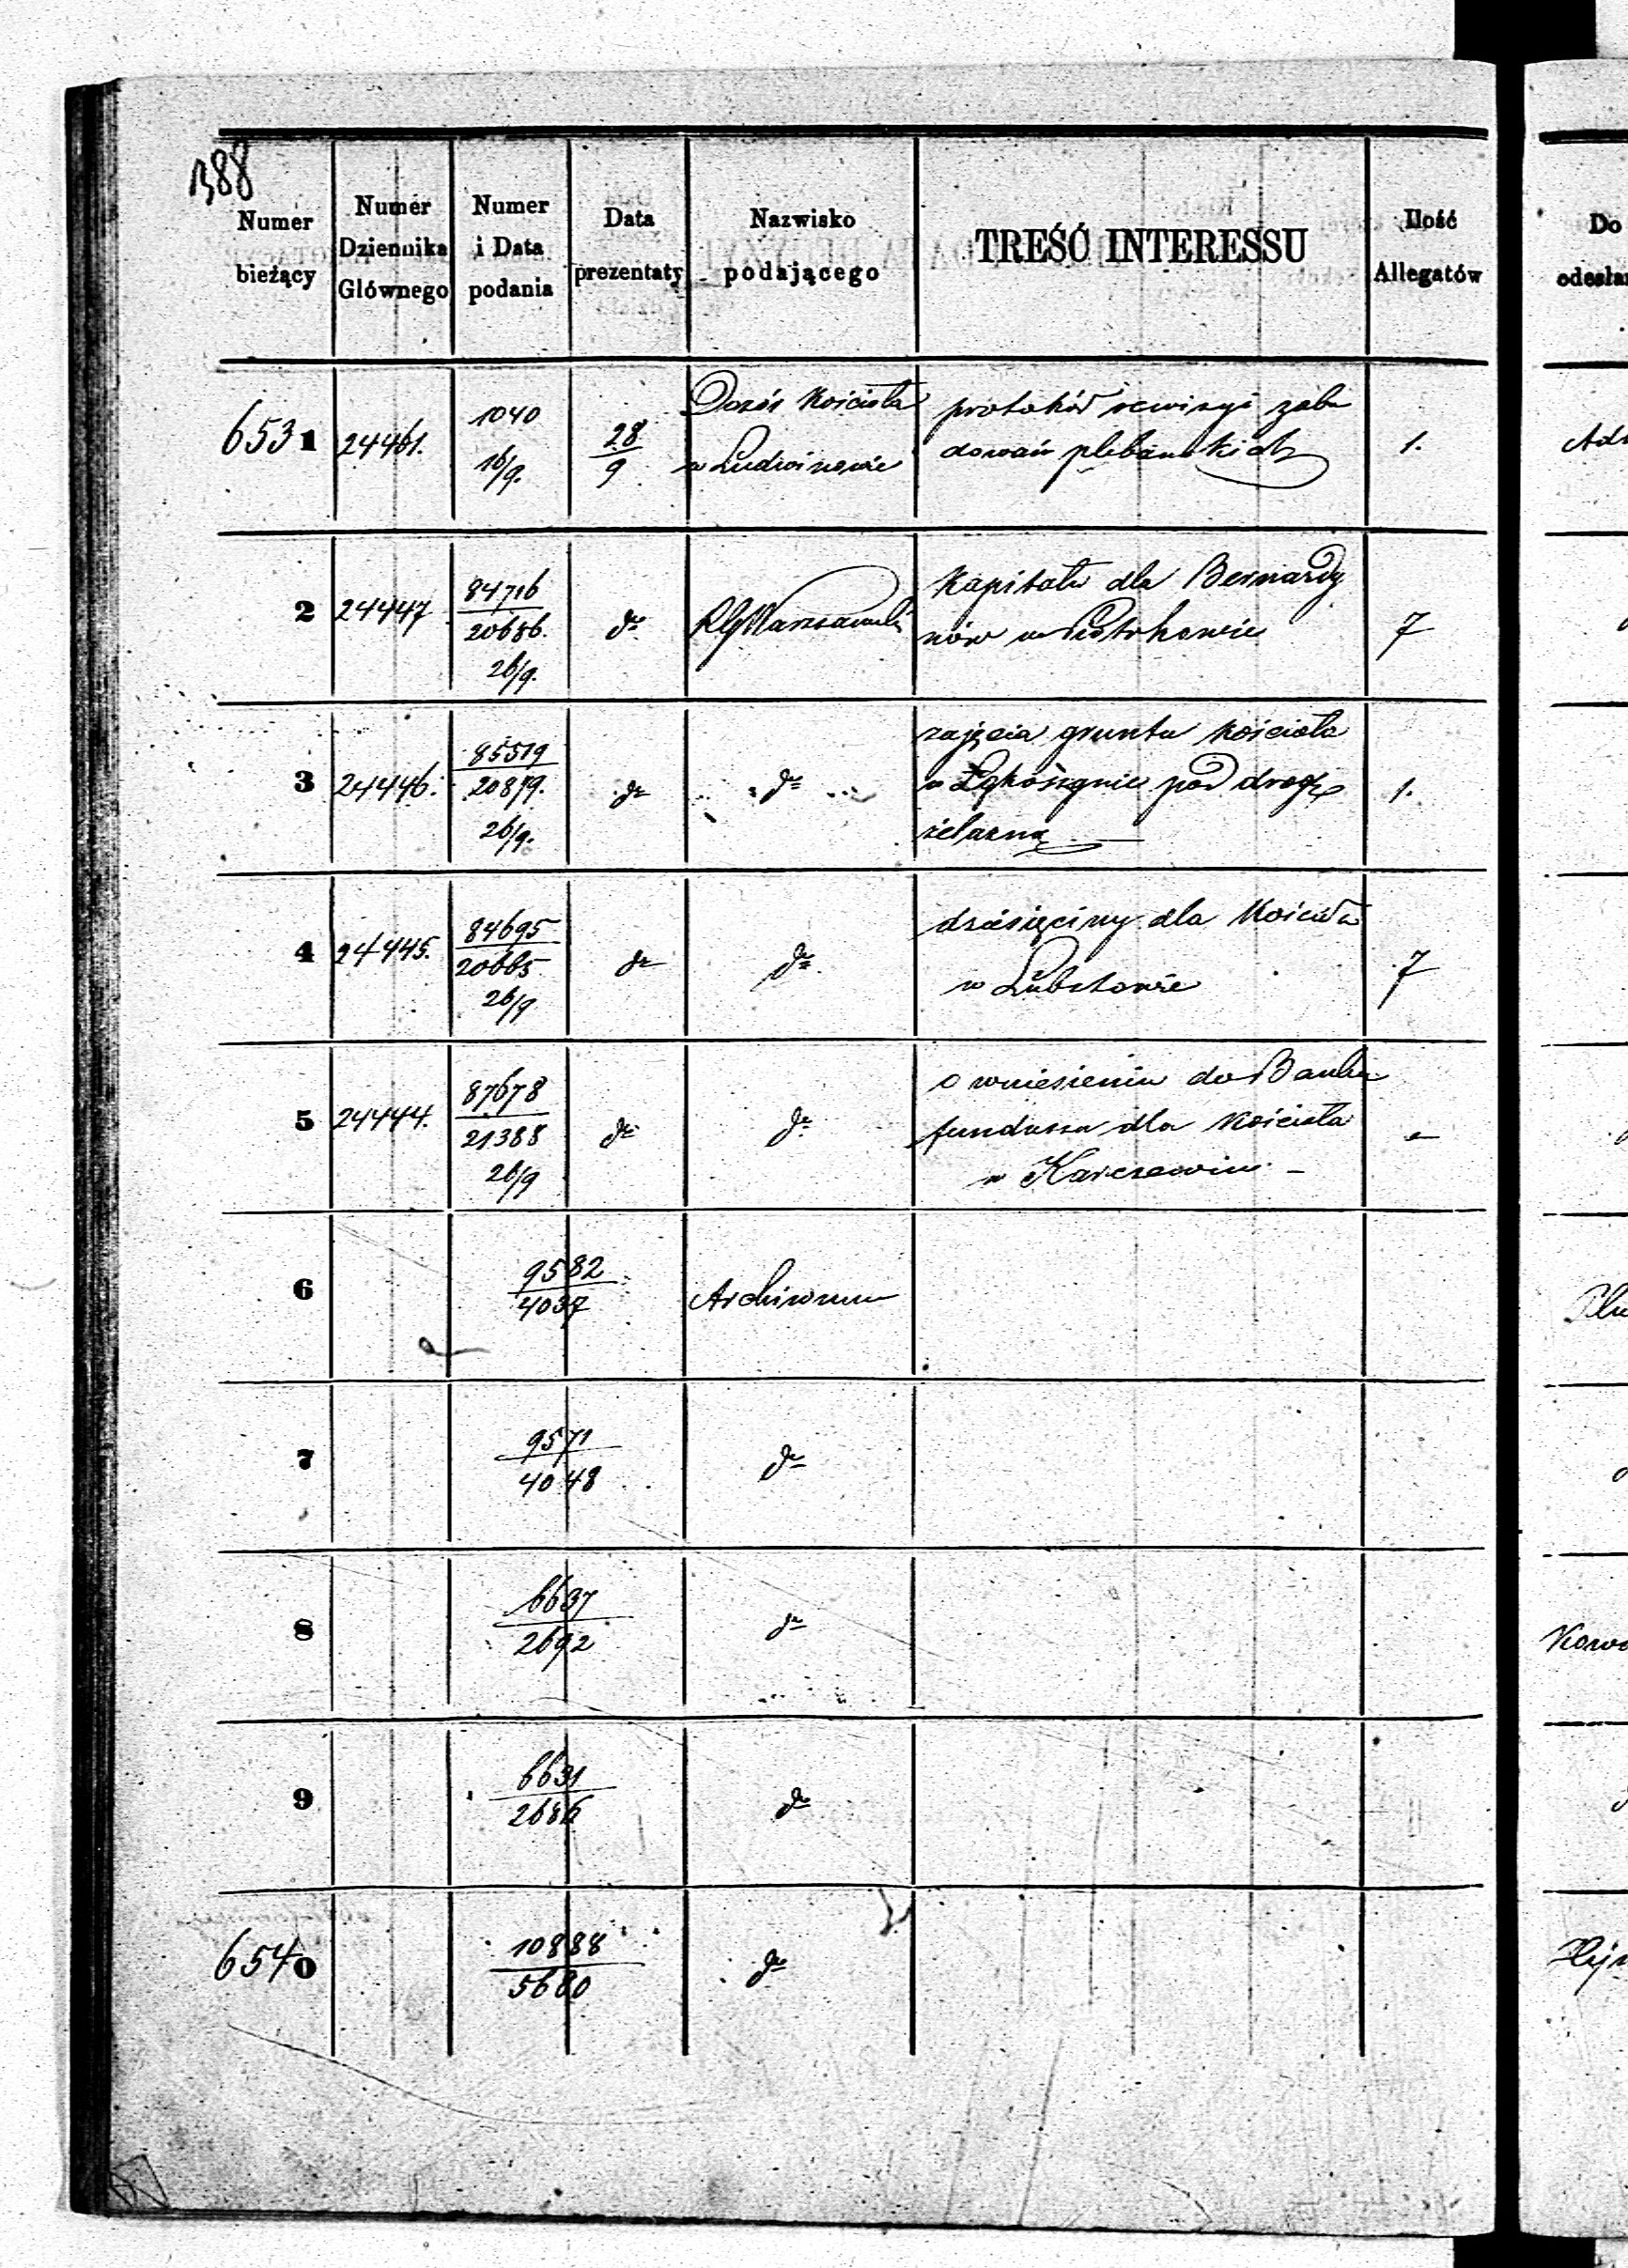 388
Numer bieżący
Numer Dziennika Głównego
Numer i Data podania
Data prezentaty
Nazwisko podającego
TREŚĆ INTERESSU
Ilość Allegatów
Do
6531 24461. 1040 16/9. 28/9 Dozór Kościoła w Ludwinowie protokół rewizyi zabu
dowań plebańskich 1.
2 24447 84716/20686. 26/9. do Kapitału dla Bernardy
nów w 7
3 24446. 85519/20879. 26/9. do do zajęcia gruntu Kościoła
w pod drogę
żelazną 1.
4 24445. 84695/20665 26/9 do do dziesięciny dla Kościoła
w Lubstowie 7
5 24444. 87678/21388 26/9 do do o wniesieniu do Banku
funduszu dla Kościoła
w Karczewiu - -
6 9582/4037 Archiwum
7 9571/4048 do
8 6637/2692 do
9 6631/2686 do
6540 10888/5680 do